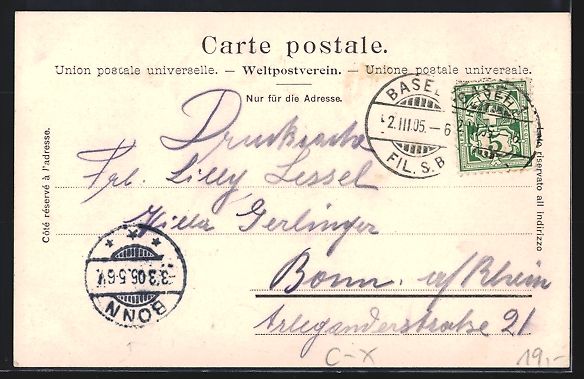 Carte postale.
Union postale universelle. — Weltpostverein. — Unione postale universale.
Nur für die Adresse.
BASEL
2.III.05.–6
FIL. S. B.
HELVETIA
5
Drucksache
Frl. Lilly Lessel
Villa Gerlinger
Bonn a/Rhein
21
Côté réservé à l'adresse.
Lato riservato all indirizzo
BONN
3.3.05.5-6V
C-X
19,-